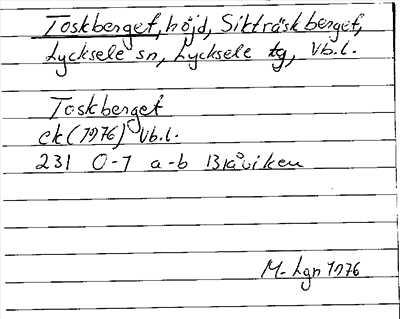 Toskberget, höjd, Sikträskberget,
Lycksele sn, Lycksele tg, Vb.l.
Toskberget
ek (1976) Vb.l.
231 0-7 a-b Blåviken
M-Lgn 1976